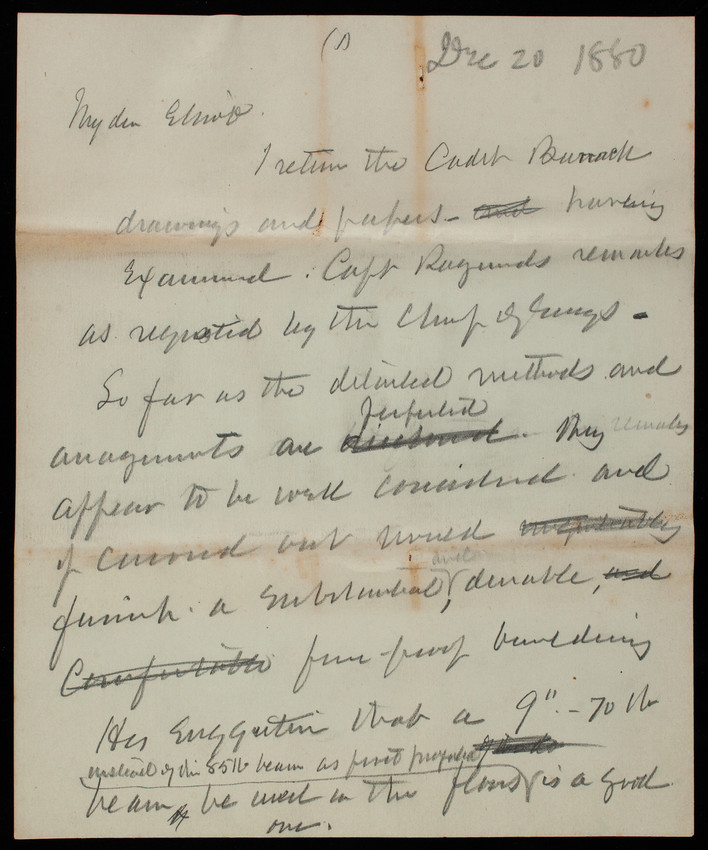 (1)
Dec 20 1880
My dear
I return the Cadet Barrack
drawings and papers - and having
Examined. Capt Raymonds remarks
as requested by the Chief of Engrs -
So far as the detailed methods and
arragements are discussed perfected. They remarks
appear to be well considered and
if carried out would
furnish. a Substantial, durable, and
Comfortable fire-proof building
His Suggestion that a 9" - 70 lb
instead of the 85 lb beam as first proposed
beam be used in the floors is a good
one.